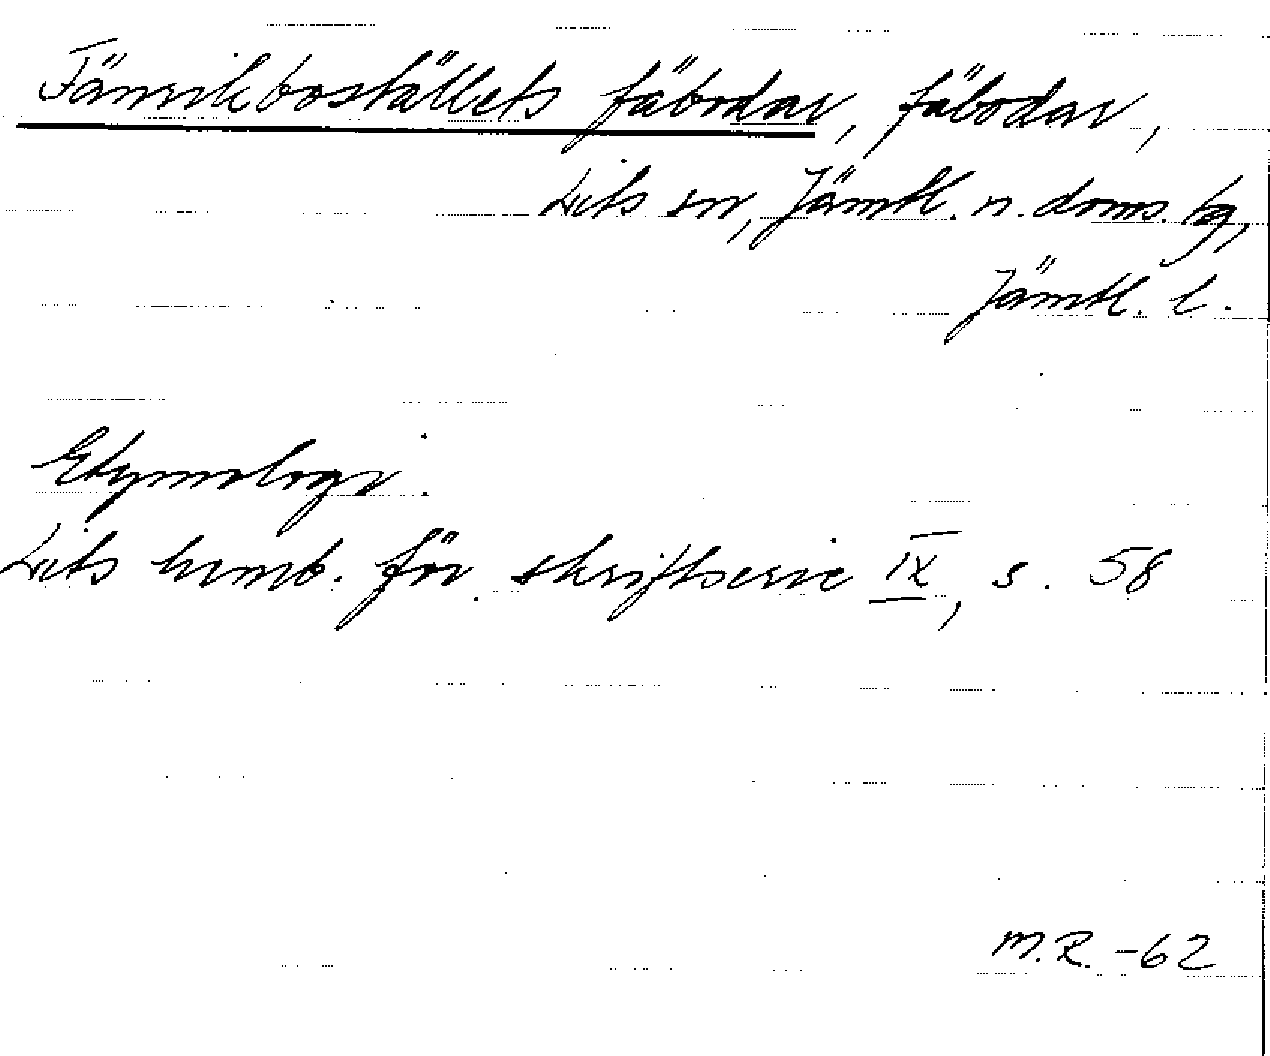 Fänrikboställets fäbodar, fäbodar,
Lits sn, Jämtl. n. doms. hg,
Jämtl. l.
Etymologi.
Lits hemb. för. skriftserie IX, s. 58
M.R. -62